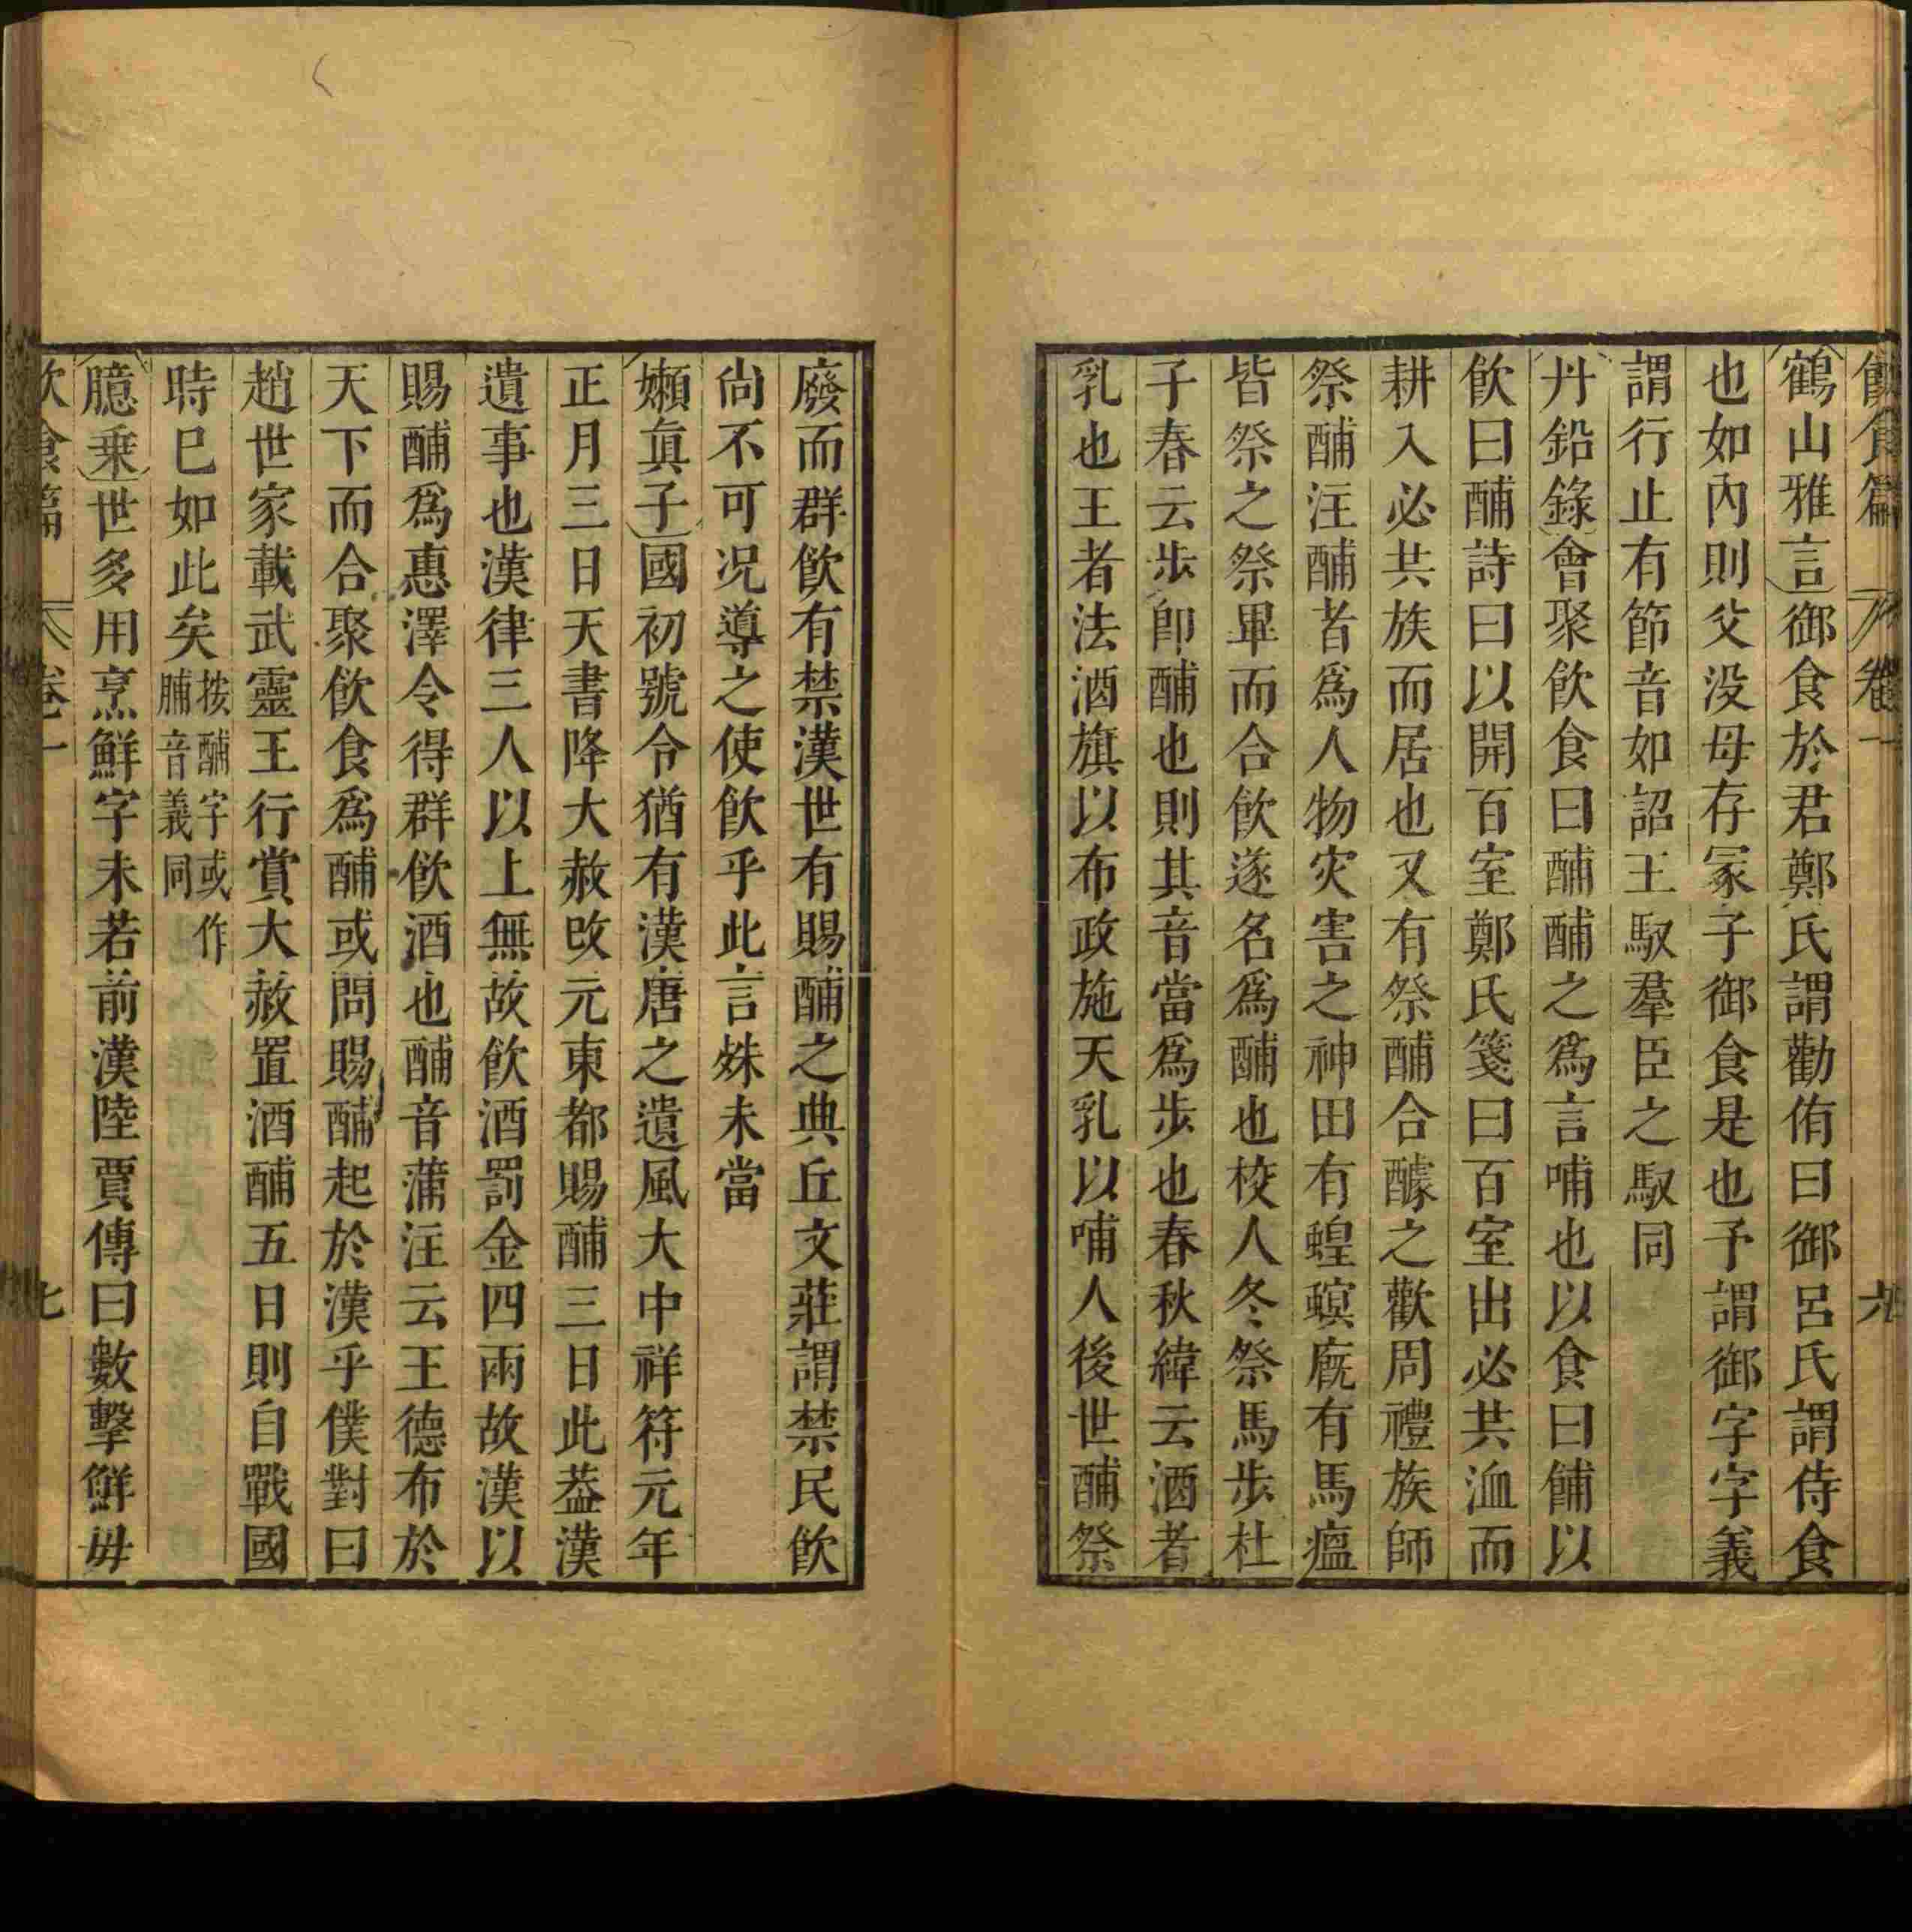 飲食篇 卷一 六
鶴山雅言御食於君鄭氏謂勸侑曰御呂氏謂侍食
也如內則父没母存冢子御食是也予謂御字字義
謂行止有節音如詔王馭羣臣之馭同
丹鉛錄會聚飲食曰酺酺之爲言哺也以食曰餔以
飲曰酺詩曰以開百室鄭氏箋曰百室出必共洫而
耕入必共族而居也又有祭酺合醵之歡周禮族師
祭酺注酺者爲人物灾害之神田有蝗螟廐有馬瘟
皆祭之祭畢而合飲遂名爲酺也校人冬祭馬步杜
子春云步卽酺也則其音當爲步也春秋緯云酒者
乳也王者法酒旗以布政施天乳以哺人後世酺祭
廢而群飲有禁漢世有賜酺之典丘文莊謂禁民飲
尙不可况導之使飲乎此言姝未當
嬾眞子國初號令猶有漢唐之遺風大中祥符元年
正月三日天書降大赦改元東都賜酺三日此葢漢
遺事也漢律三人以上無故飲酒罰金四兩故漢以
賜酺爲惠澤令得群飲酒也酺音蒲注云王德布於
天下而合聚飲食爲酺或問賜酺起於漢乎僕對曰
趙世家載武靈王行賞大赦置酒酺五日則自戰國
時巳如此矣按酺字或作脯音義同
臆乗世多用烹鮮字未若前漢陸賈傳曰數擊鮮毋
飲食篇 卷一 七